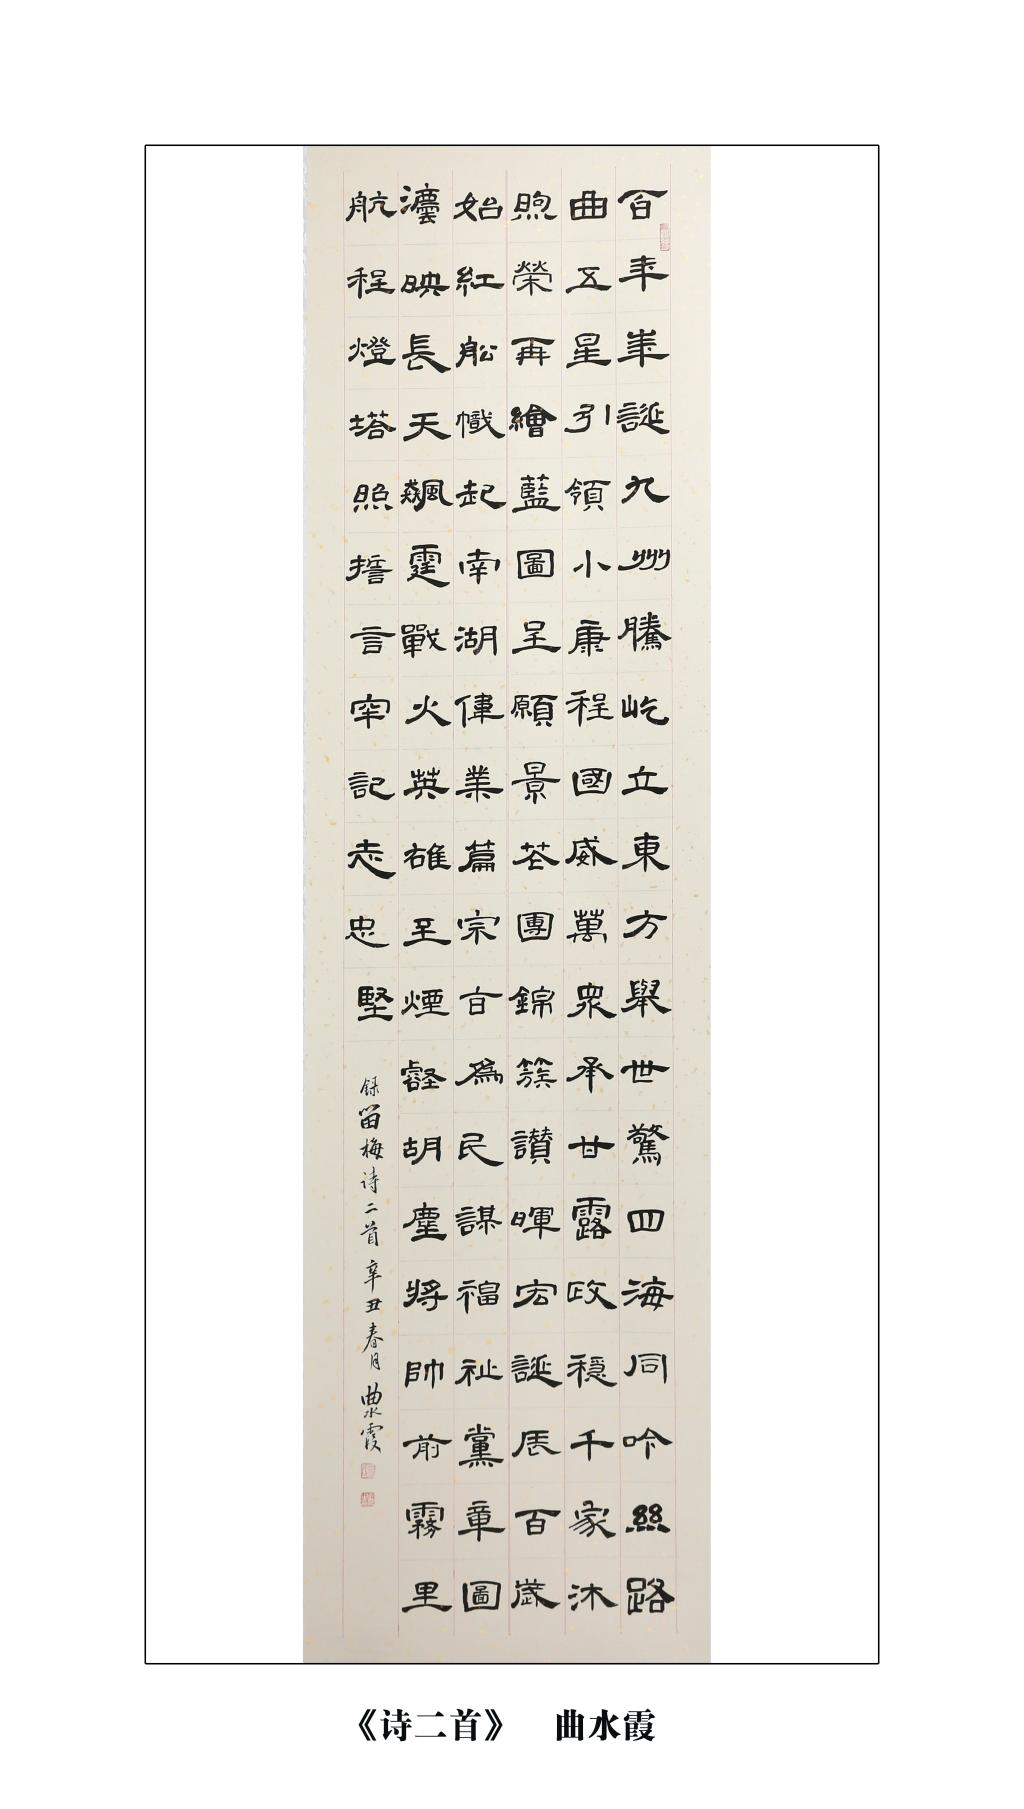 百年華誕九州騰屹立東方舉世驚四海同吟絲路
曲五星引領小康程國威萬眾承甘露政穩千家沐
煦榮再繪藍圖呈願景花團錦簇讚暉宏誕辰百歲
始紅船幟起南湖偉業篇宗旨為民謀福祉黨章圖
灋映長天飆霆戰火英雄至煙壑胡塵將帥前霧里
航程燈塔照誓言牢記志忠堅
錄留梅诗二首辛丑春月曲水霞
《诗二首》 曲水霞